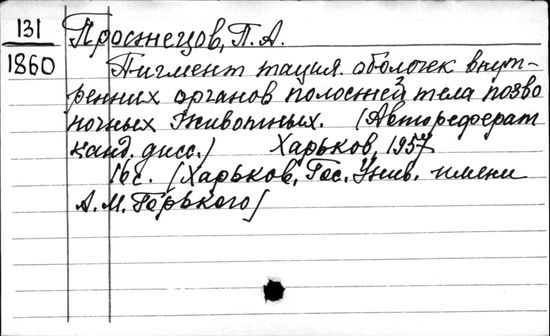 131
1860
Проснецов, П. А.
Пигментация оболочек внут-
ренних органов полостей тела позво
ночных животных. (Автореферат
канд. дисс.) Харьков, 1957
16с. [Харьков, Гос. Унив. имени
А. М. Горького]